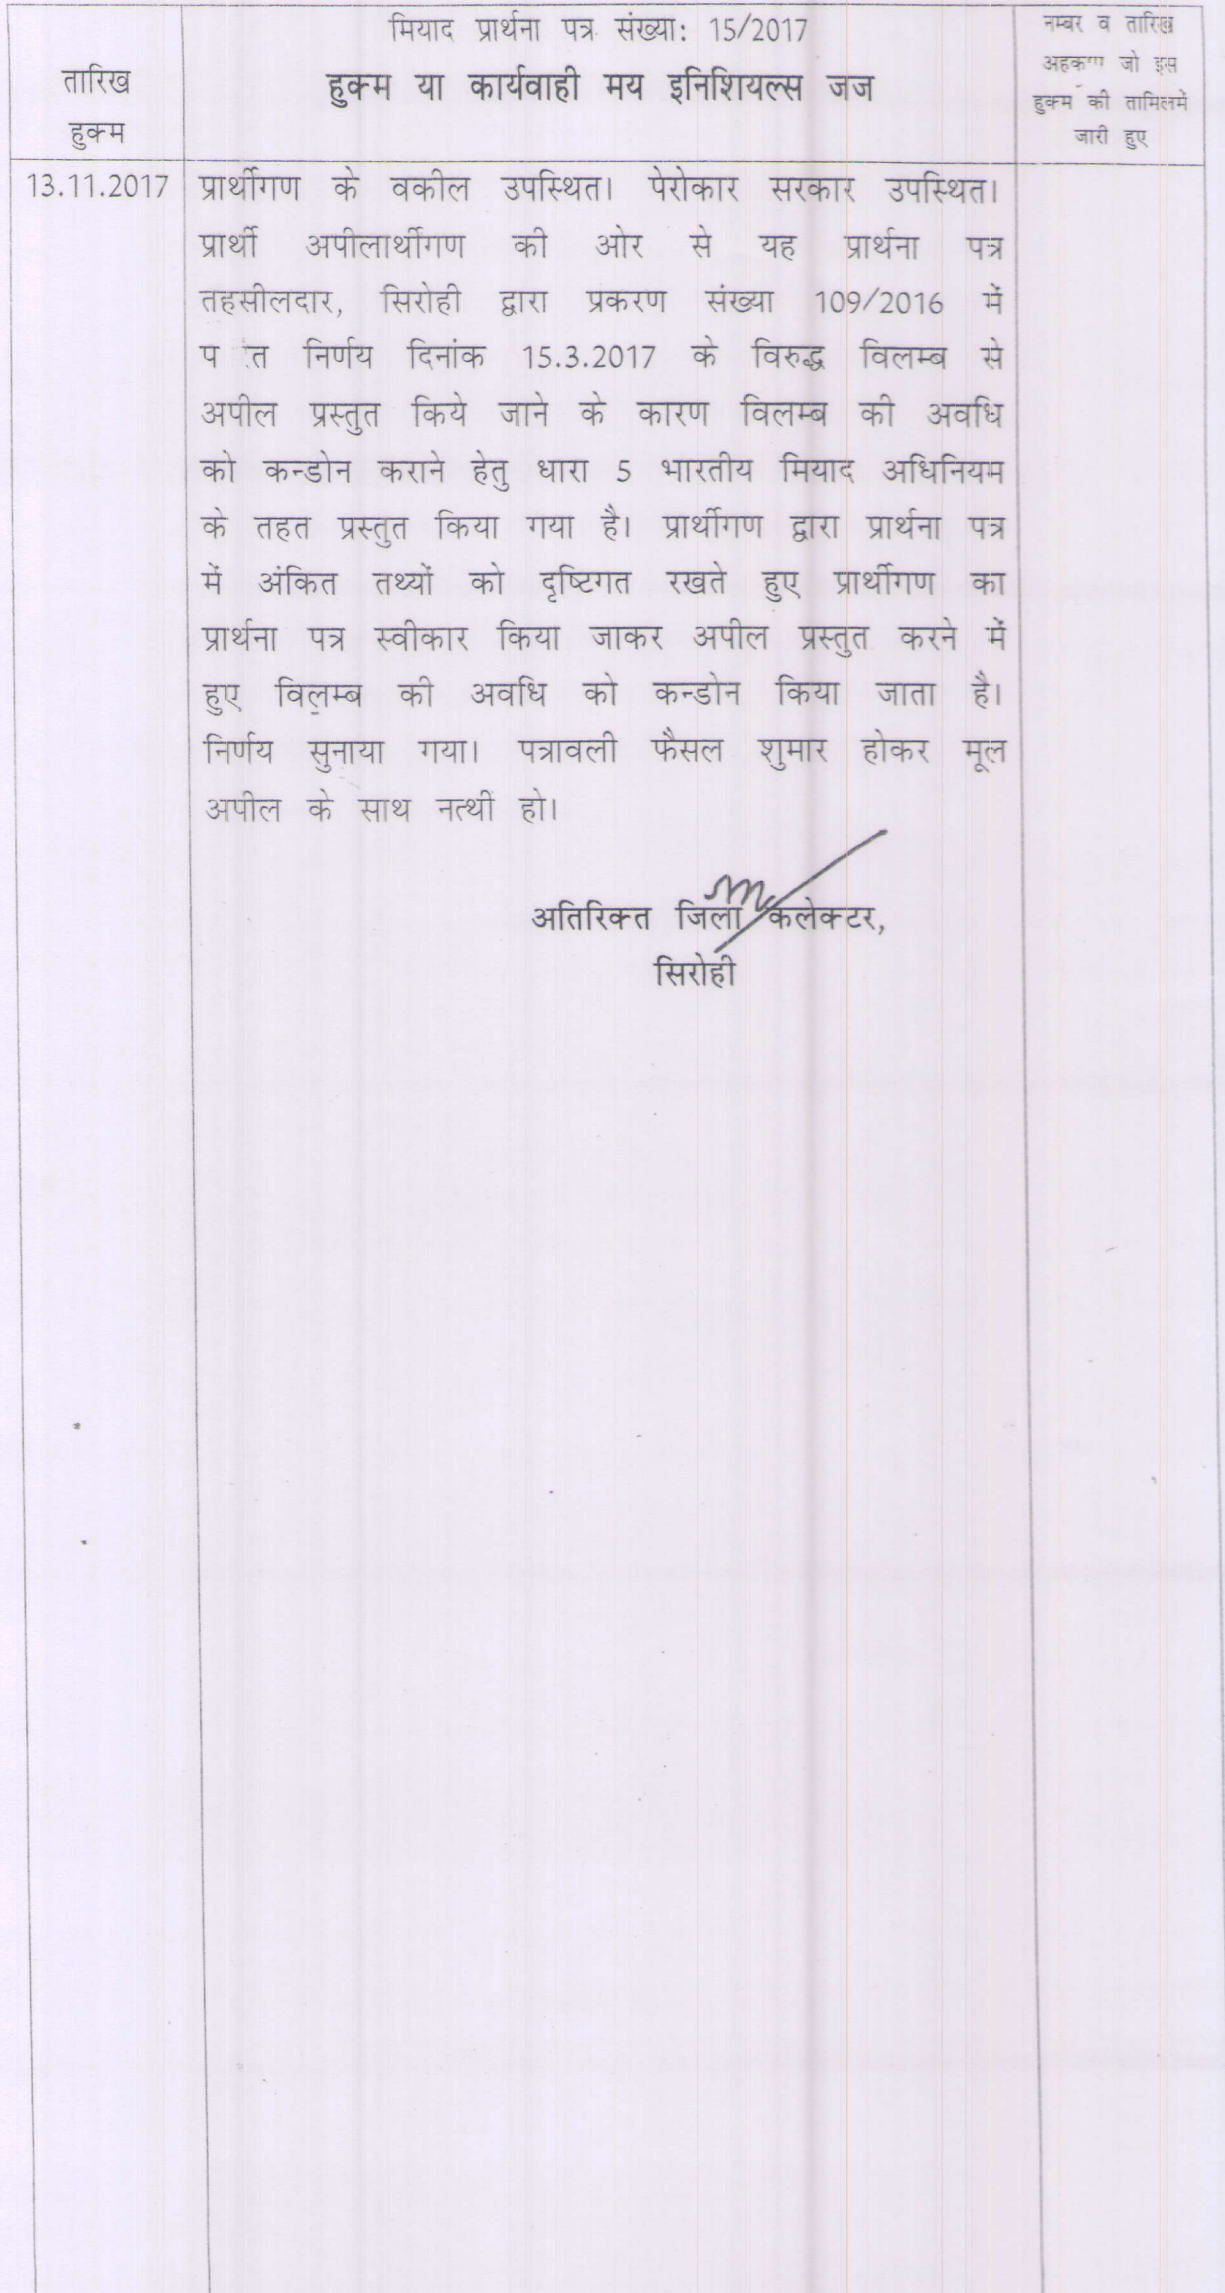 मियाद प्रार्थना पत्र संख्या: 15/2017
तारिख
हुक्म
हुक्म या कार्यवाही मय इनिशियल्स जज
नम्बर व तारिख
जो इस
हुक्म की तामिलमें
जारी हुए
13.11.2017
प्रार्थीगण के वकील उपस्थित। पेरोकार सरकार उपस्थित।
प्रार्थी अपीलार्थीगण की ओर से यह प्रार्थना पत्र
तहसीलदार, सिरोही द्वारा प्रकरण संख्या 109/2016 में
निर्णय दिनांक 15.3.2017 के विरुद्ध विलम्ब से
अपील प्रस्तुत किये जाने के कारण विलम्ब की अवधि
को कन्डोन कराने हेतु धारा 5 भारतीय मियाद अधिनियम
के तहत प्रस्तुत किया गया है। प्रार्थीगण द्वारा प्रार्थना पत्र
में अंकित तथ्यों को दृष्टिगत रखते हुए प्रार्थीगण का
प्रार्थना पत्र स्वीकार किया जाकर अपील प्रस्तुत करने में
हुए विलम्ब की अवधि को कन्डोन किया जाता है।
निर्णय सुनाया गया। पत्रावली फैसल शुमार होकर मूल
अपील के साथ नत्थी हो।
अतिरिक्त जिला कलेक्टर,
सिरोही